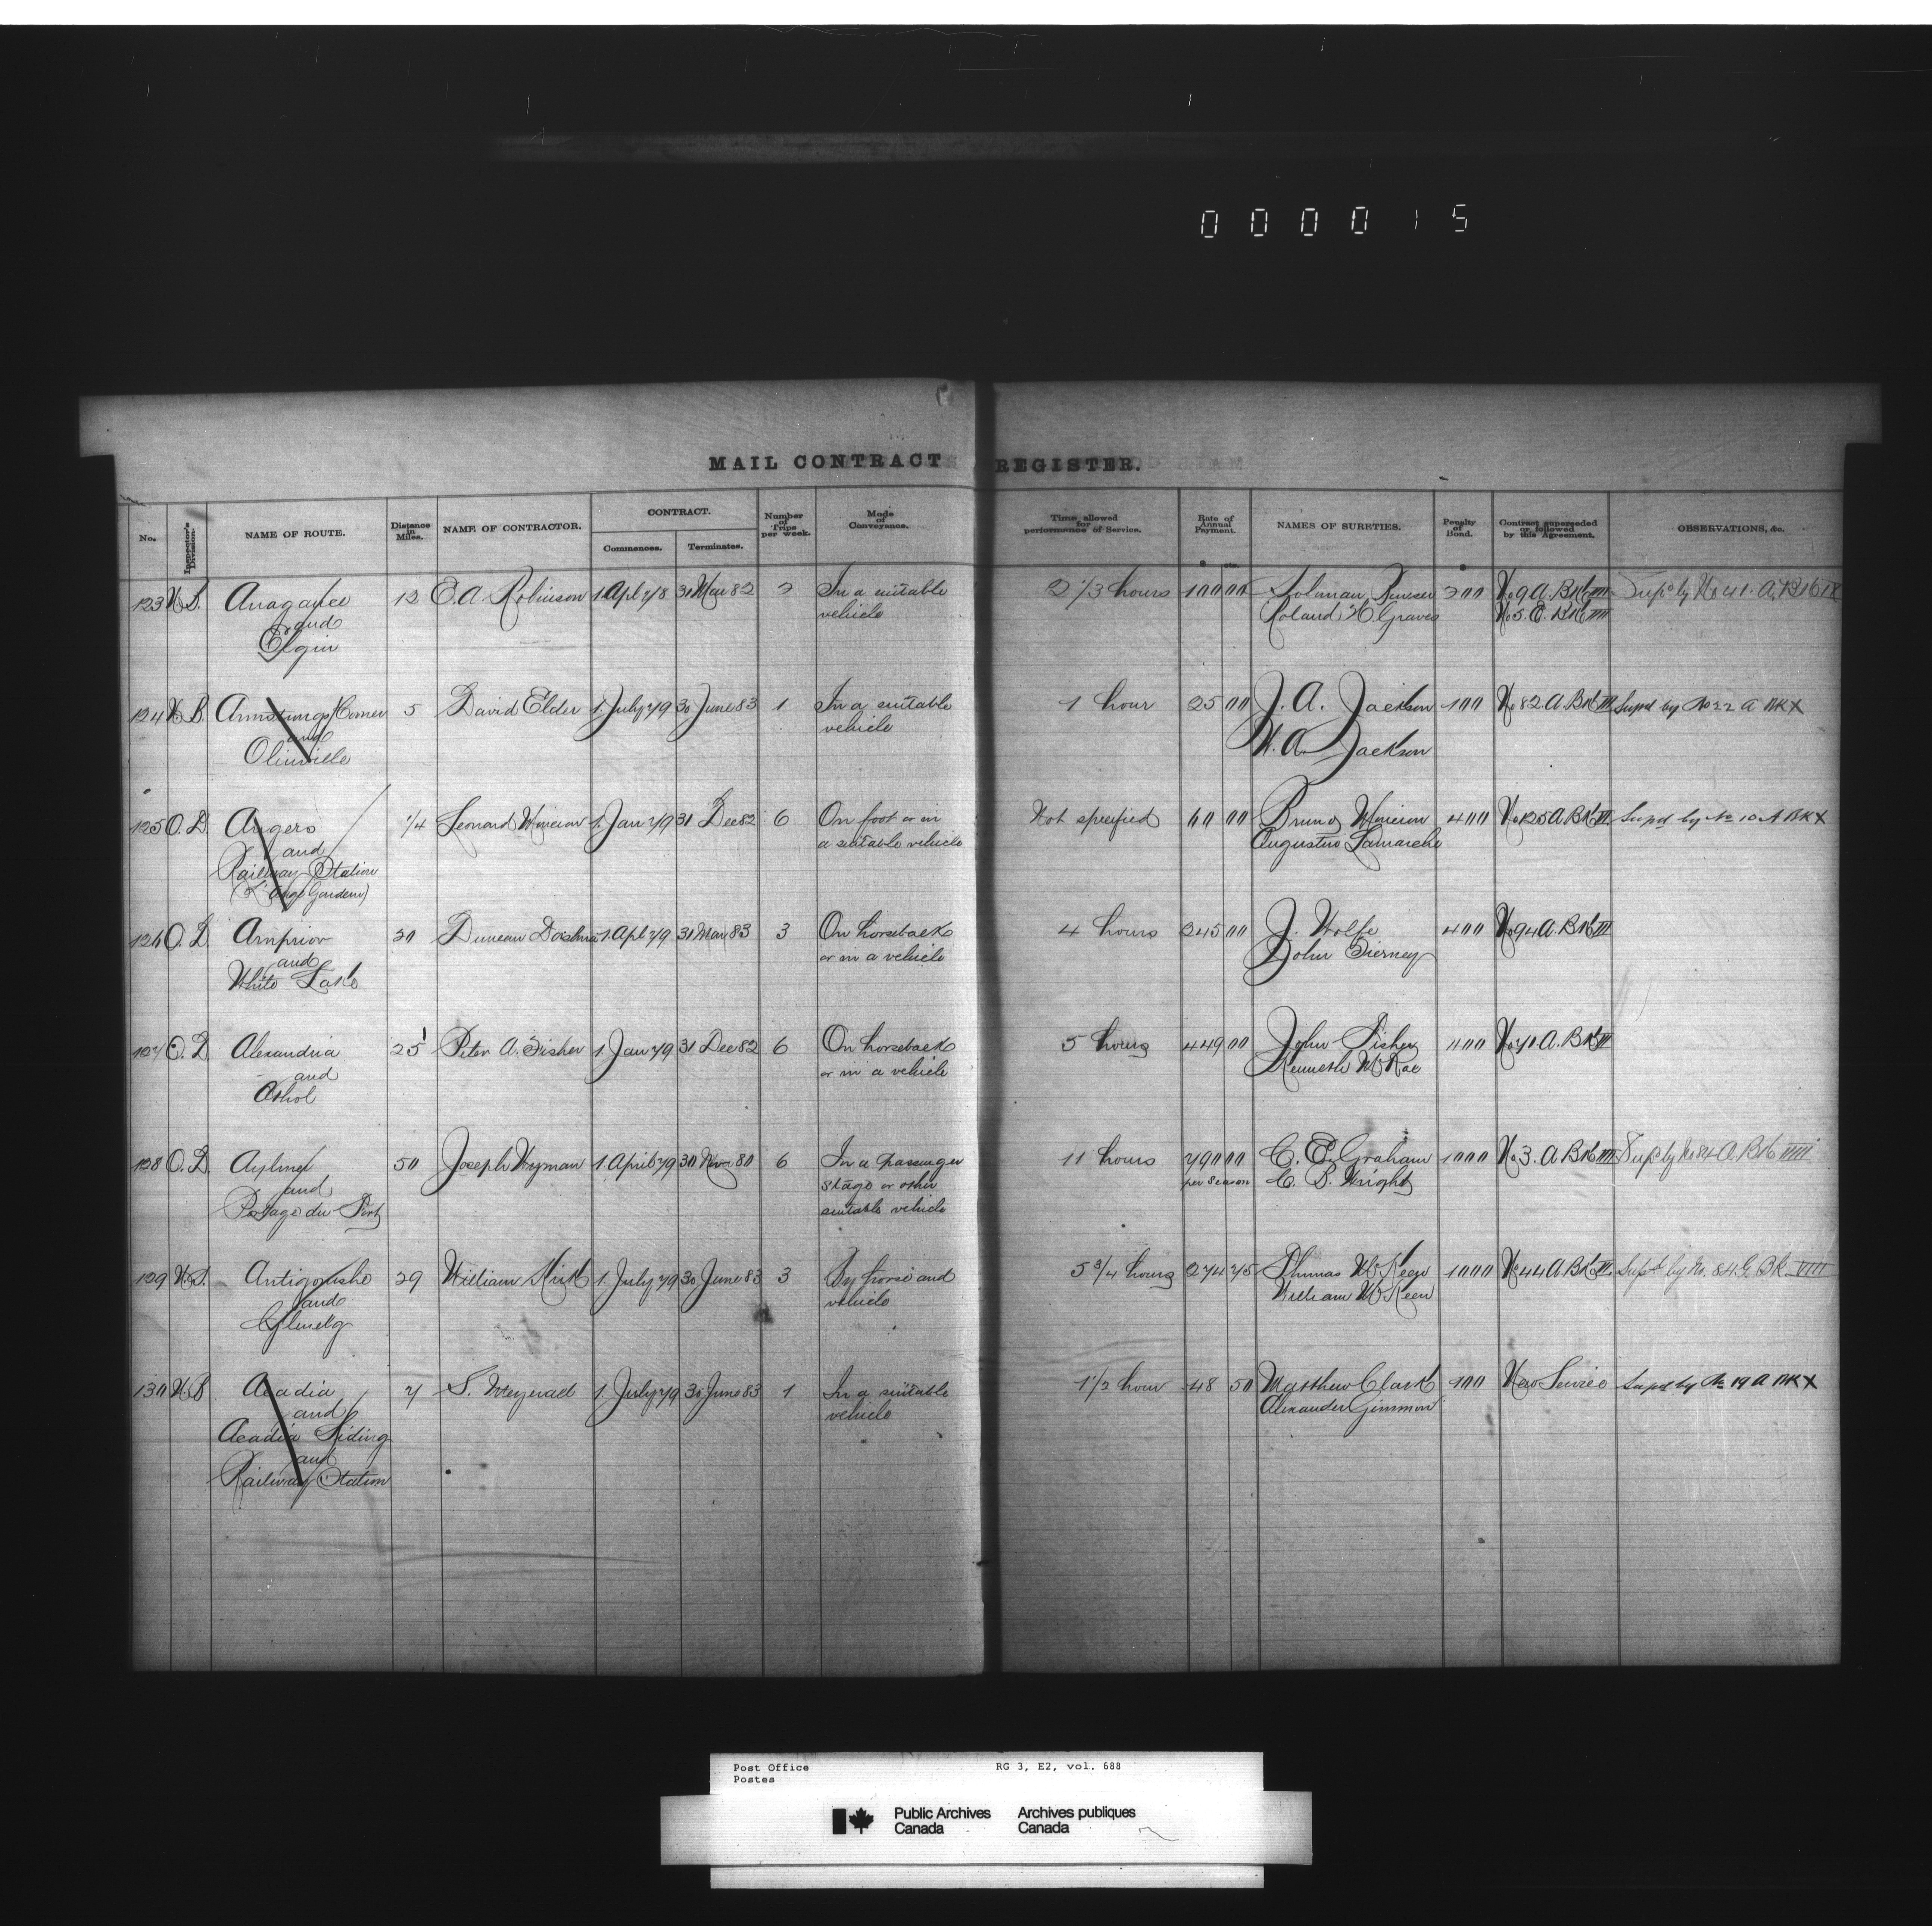 000015
MAIL CONTRACT REGISTER.
No. Inspector's Division. NAME OF ROUTE. Distance in Miles. NAME OF CONTRACTOR. CONTRACT. Commences. Terminates. Number of Trips per week. Mode of Conveyance. Time allowed for performance of Service. Rate of Annual Payment. NAMES OF SURETIES. Penalty of Bond. Contract superseded or followed by this Agreement. OBSERVATIONS, &c.
123 Anagance 12 E. A. Robinson 1 Apl 78 31 Mar 82 2 In a suitable 2 1/3 hours 100 00 200 No 9 A. Bk III Supd by No 41. A, Bk IX
and vehicle Roland H Graves No 5. E. Bk IIII
Elgin
124 N. B. Armstrongs Corner 5 David Elder 1. July 79 30 June 83 1 In a suitable 1 hour 25 00 J. A. Jackson 100 No 82. A. Bk III Supd by No 22 A BK X
and vehicle W. A. Jackson
Olinville
125 O. D. Angers 1/4 Leonard 1. Jan 79 31 Dec 82 6 On foot or in Not specified 60 00 Bruno 400 No 125 A Bk II Supd by No 10 A BK X
and a suitable vehicle Augustus Lamarche
Railway Station
(L'Ange Gardien)
126 O. D. Arnprior 20 Duncan 1 Apl 79 31 Mar 83 3 On horseback 4 hours 245 00 J. Wolfe 400 No 94 A. Bk III
and or in a vehicle John Tierney
White Lake
127 O. D. Alexandria 25 Peter A. Fisher 1 Jan 79 31 Dec 82 6 On horseback 5 hours 449 00 John Fisher 400 No 71 A. Bk II
and or in a vehicle Kenneth McRae
Athol
128 O. D. Aylmer 50 Joseph Wyman 1 April 79 30 Nov 80 6 In a passenger 11 hours 790 00 C. E. Graham 1000 No 3. A Bk III Supd by No 84 A. Bk IIIII
and stage or other per season C. B. Wright
Portage du Fort suitable vehicle
129 N. S. Antigonishe 29 William Kirk 1. July 79 30 June 83 3 By horse and 5 3/4 hours 274 75 Thomas McKeen 1000 No 44 A Bk II. Supd by No. 84 G Bk VIIII
and vehicle William McKeen
Glenelg
130 N. B. Acadia 7 S. 1. July 79 30 June 83 1 In a suitable 1 1/2 hour 48 50 Matthew Clark 100 New Service Supd by No 19 A BK X
and vehicle Alexander Gimmon
Acadia Siding
and
Railway Station
Post Office RG 3, E2, vol. 688
Postes
Public Archives Archives publiques
Canada Canada